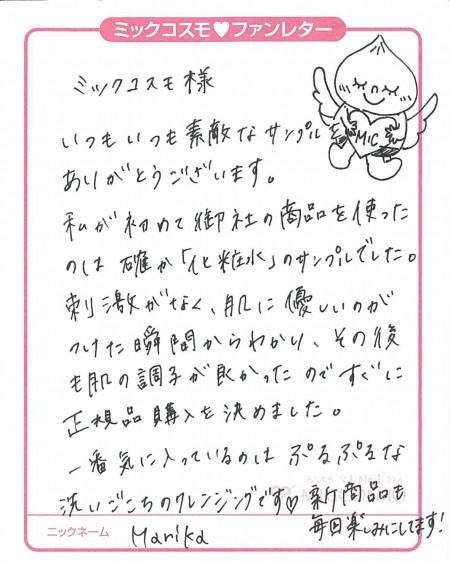 ミックコスモ♥ファンレター
ミックコスモ様
いつもいつも素敵なサンプルを
ありがとうございます。
MiC
私が初めて御社の商品を使った
のは確か「化粧水」のサンプルでした。
刺激がなく、肌に優しいのが
つけた瞬間からわかり、その後
も肌の調子が良かったのですぐに
正規品購入を決めました。
一番気に入っているのは ぷるぷるな
洗いごこちのクレンジングです♡ 新商品も
毎回楽しみにしてます!
ニックネーム Marika